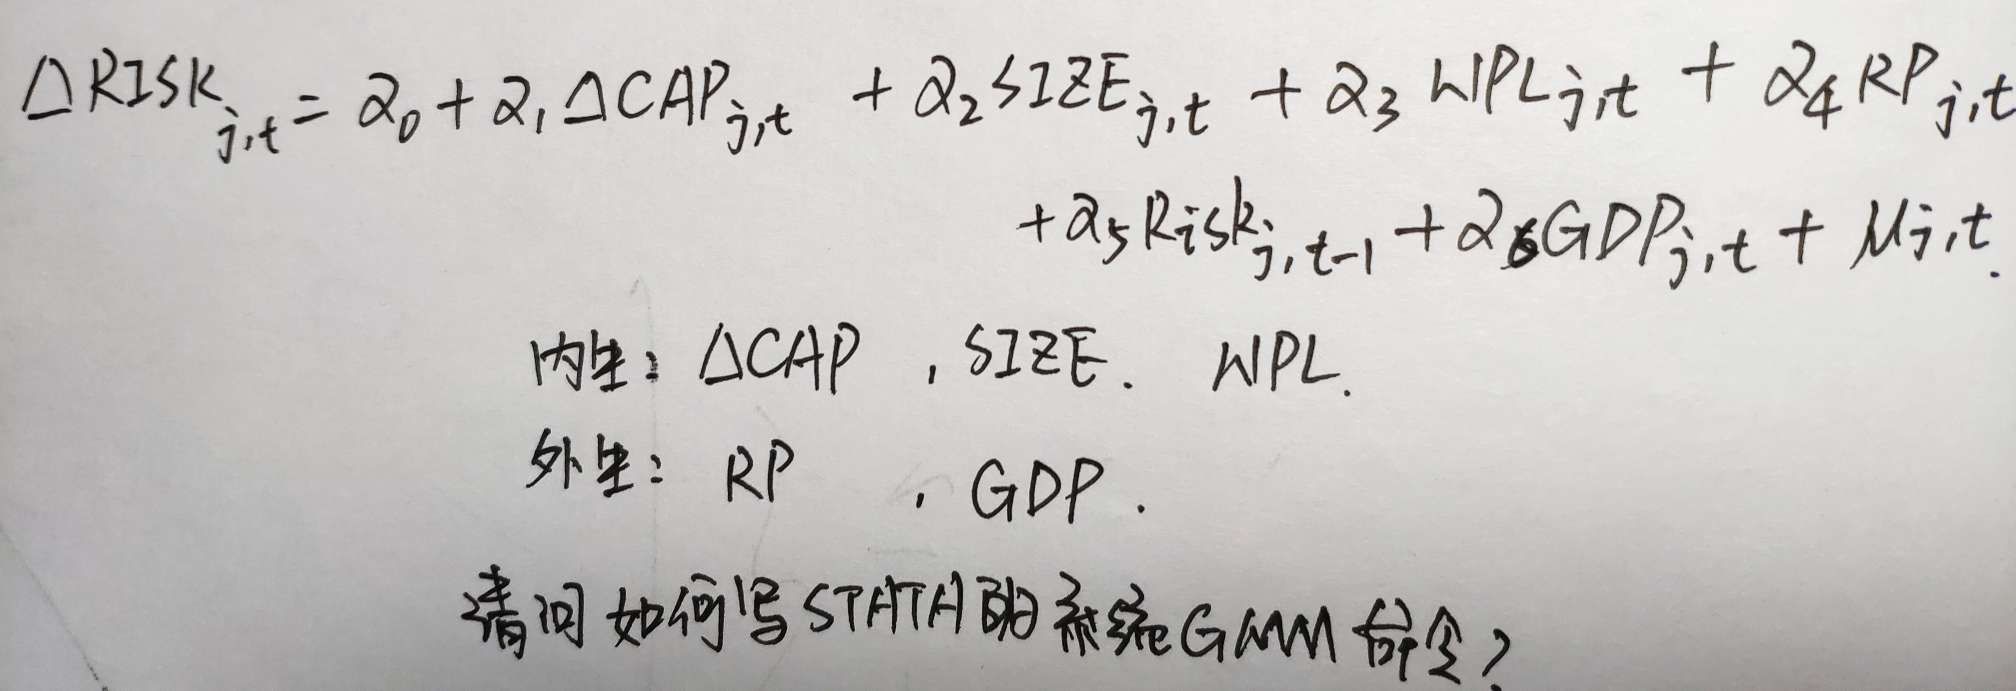 ΔRISKj,t = α0 + α1ΔCAPj,t + α2SIZEj,t + α3WPLj,t + α4RPj,t
+ α5Riskj,t-1 + α6GDPj,t + μj,t.
内生: ΔCAP , SIZE. WPL.
外生: RP , GDP.
请问如何写STATA的系统GMM命令?